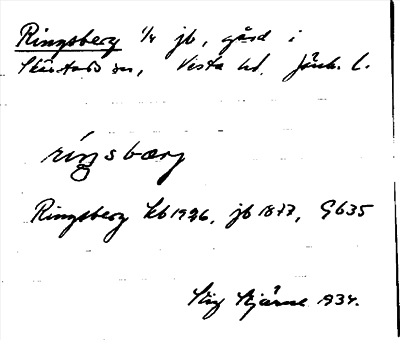 Ringsberg 1/4 jb, gård i
Skärstads sn, Vista hd, Jönk. l.
ríŋsbærj
Ringsberg kb 1926, jb 1877, Gb35
Stig Stjärne 1934.